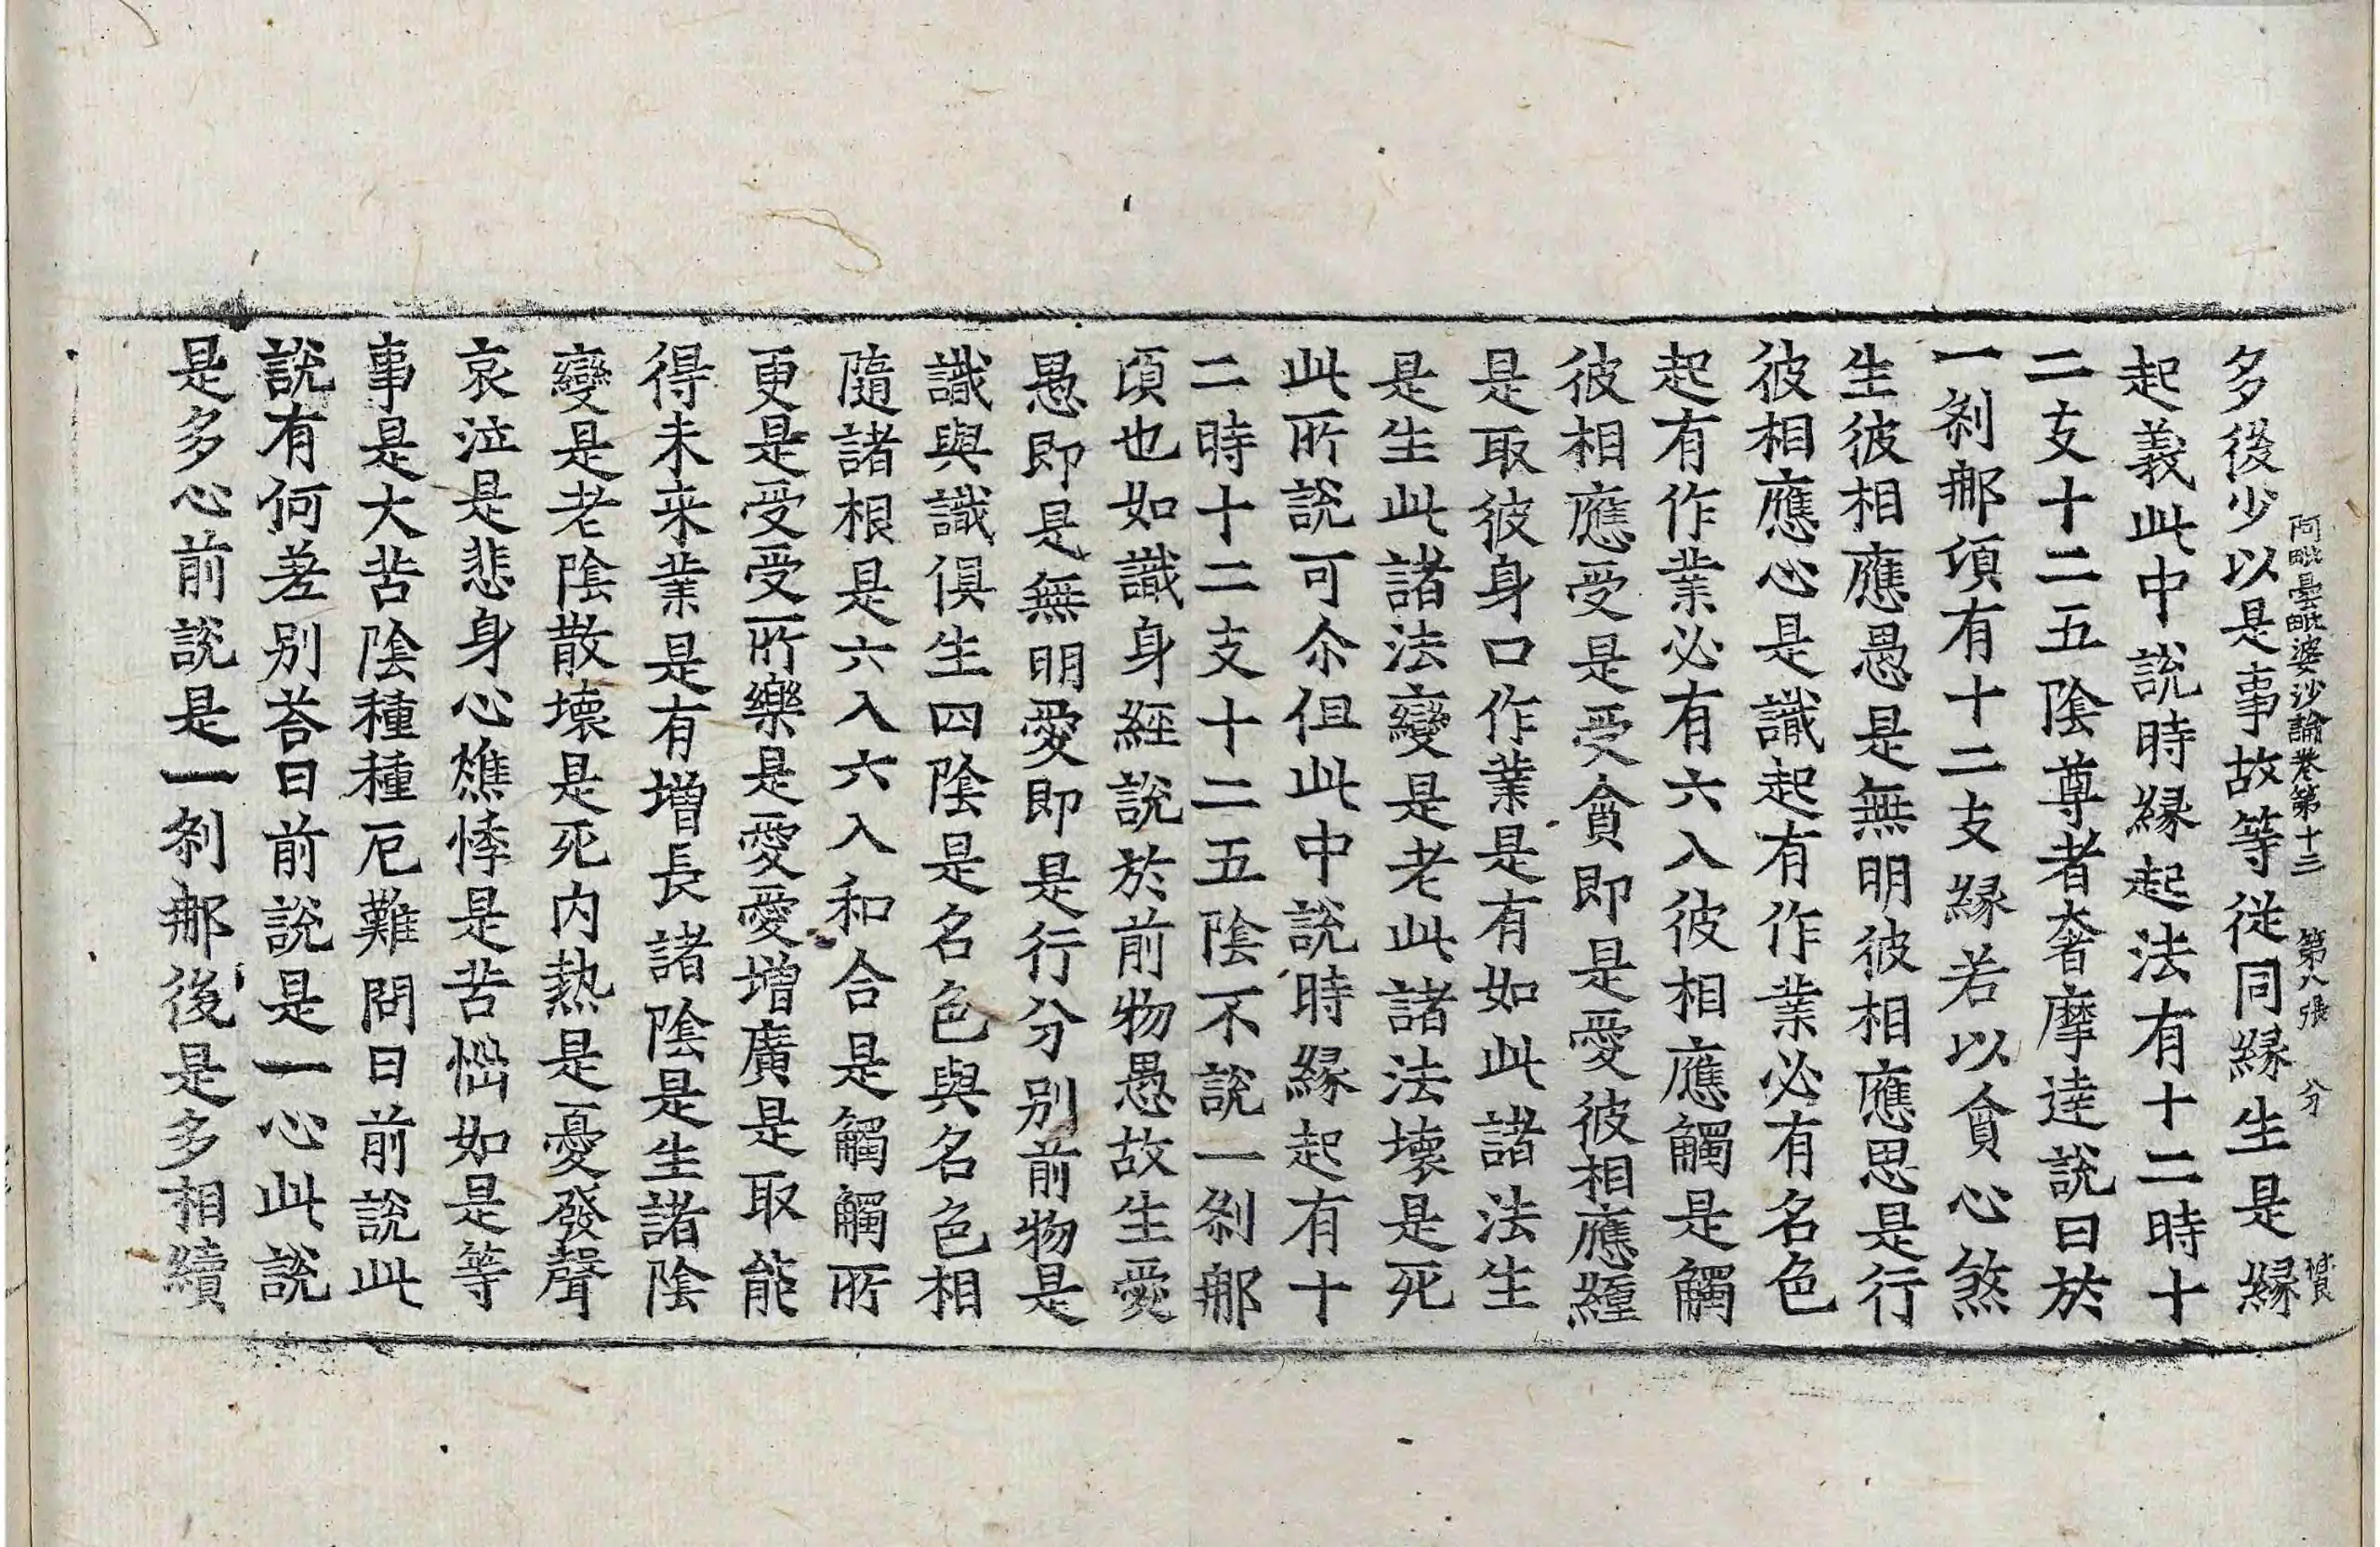 阿毗曇毗婆沙論卷第十三 第八張 分
多後少以是事故等從同縁生是縁
起義此中說時縁起法有十二時十
二支十二五陰尊者奢摩達說曰於
一剎那頃有十二支縁若以貪心煞
生彼相應愚是無明彼相應思是行
彼相應心是識起有作業必有名色
起有作業必有六入彼相應觸是觸
彼相應受是受貪即是愛彼相應纏
是取彼身口作業是有如此諸法生
是生此諸法變是老此諸法壞是死
此所說可尒但此中說時縁起有十
二時十二支十二五陰不說一剎那
頃也如識身經說於前物愚故生愛
愚即是無明愛即是行分別前物是
識與識俱生四陰是名色與名色相
隨諸根是六入六入和合是觸觸所
更是受受所樂是愛愛增廣是取能
得未来業是有增長諸陰是生諸陰
變是老陰散壞是死內熱是憂發聲
哀泣是悲身心燋悴是苦惱如是等
事是大苦陰種種厄難問曰前說此
說有何差别荅曰前說是一心此說
是多心前說是一剎那後是多相續